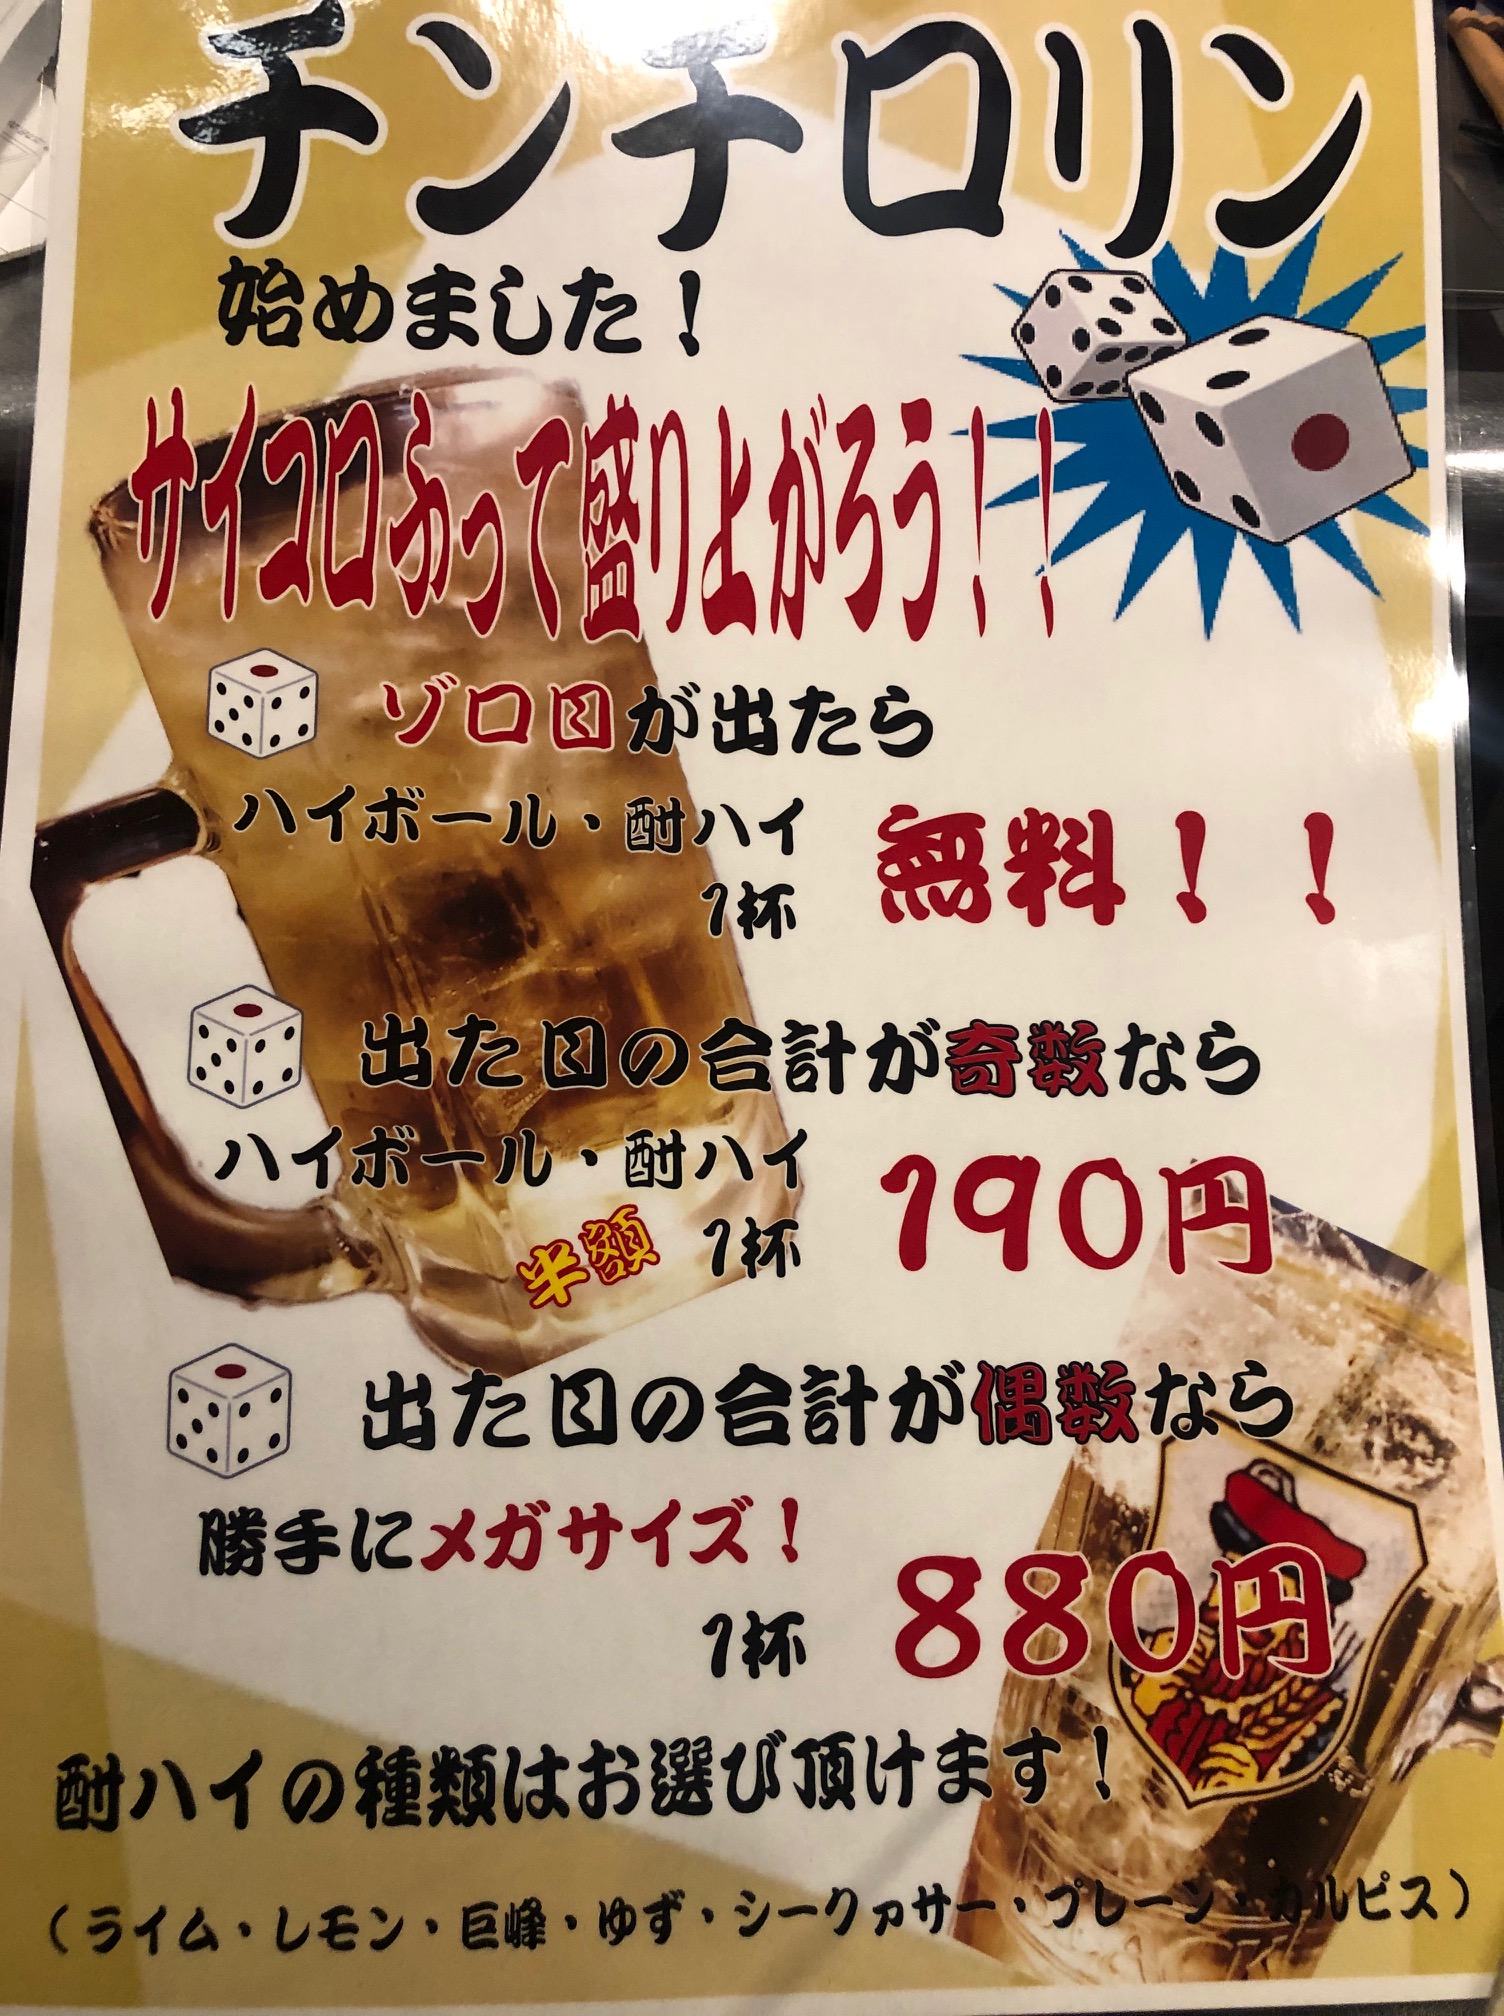 チンチロリン
始めました！
サイコロふって盛り上がろう！！
ゾロ目が出たら
ハイボール・酎ハイ
1杯 無料！！
出た目の合計が奇数なら
ハイボール・酎ハイ
半額 1杯 190円
出た目の合計が偶数なら
勝手にメガサイズ！
1杯 880円
酎ハイの種類はお選び頂けます！
（ライム・レモン・巨峰・ゆず・シークァサー・プレーン・カルピス）